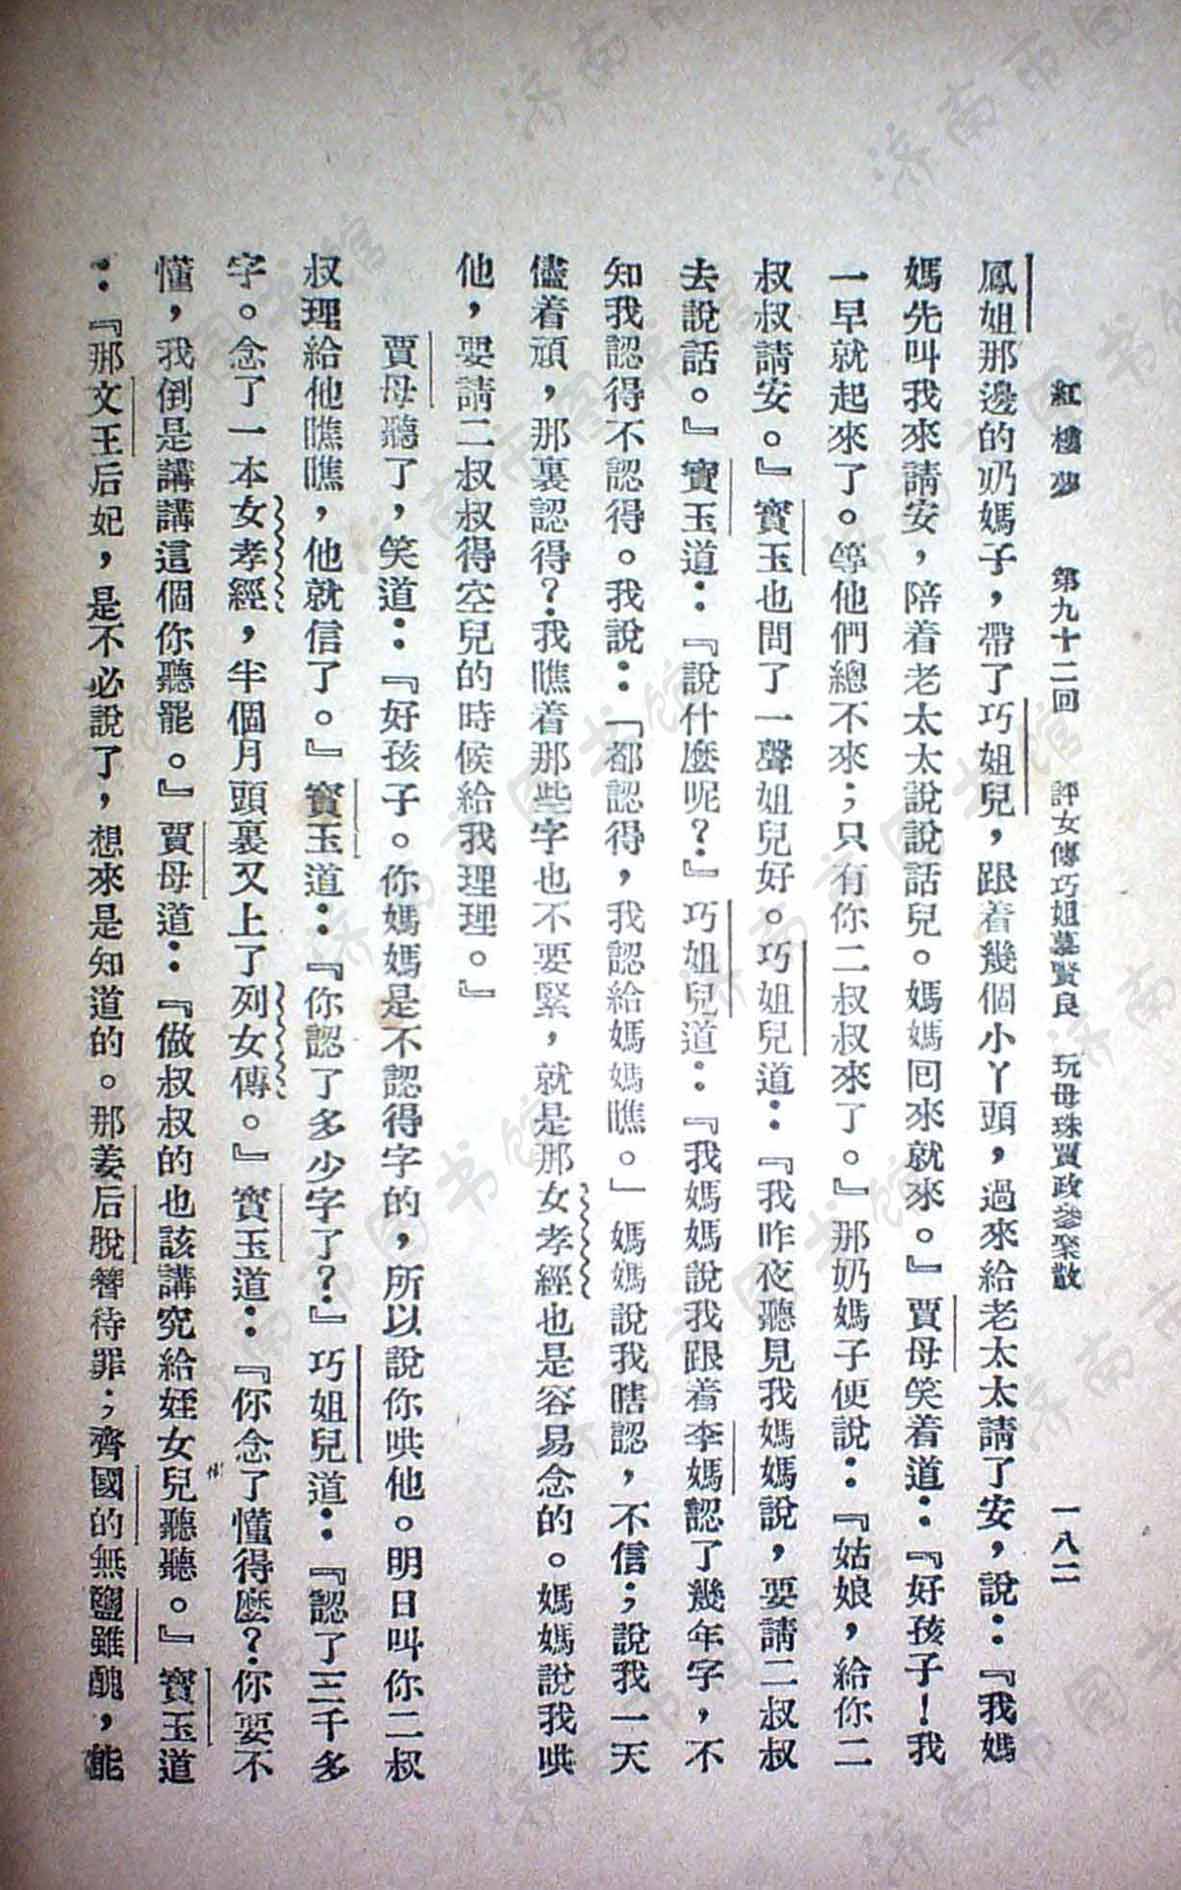 紅樓夢　第九十二回　評女傳巧姐慕賢良　玩母珠賈政參聚散　一八二
鳳姐那邊的奶媽子，帶了巧姐兒，跟着幾個小丫頭，過來給老太太請了安，說：『我媽
媽先叫我來請安，陪着老太太說說話兒。媽媽回來就來。』賈母笑着道：『好孩子！我
一早就起來了。等他們總不來；只有你二叔叔來了。』那奶媽子便說：『姑娘，給你二
叔叔請安。』寶玉也問了一聲姐兒好。巧姐兒道：『我昨夜聽見我媽媽說，要請二叔叔
去說話。』寶玉道：『說什麼呢？』巧姐兒道：『我媽媽說我跟着李媽認了幾年字，不
知我認得不認得。我說：「都認得，我認給媽媽瞧。」媽媽說我瞎認，不信；說我一天
儘着頑，那裏認得？我瞧着那些字也不要緊，就是那女孝經也是容易念的。媽媽說我哄
他，要請二叔叔得空兒的時候給我理理。』
賈母聽了，笑道：『好孩子。你媽媽是不認得字的，所以說你哄他。明日叫你二叔
叔理給他瞧瞧，他就信了。』寶玉道：『你認了多少字了？』巧姐兒道：『認了三千多
字。念了一本女孝經，半個月頭裏又上了列女傳。』寶玉道：『你念了懂得麼？你要不
懂，我倒是講講這個你聽罷。』賈母道：『做叔叔的也該講究給姪女兒聽聽。』寶玉道
：『那文王后妃，是不必說了，想來是知道的。那姜后脫簪待罪；齊國的無鹽雖醜，能
济南市图书馆